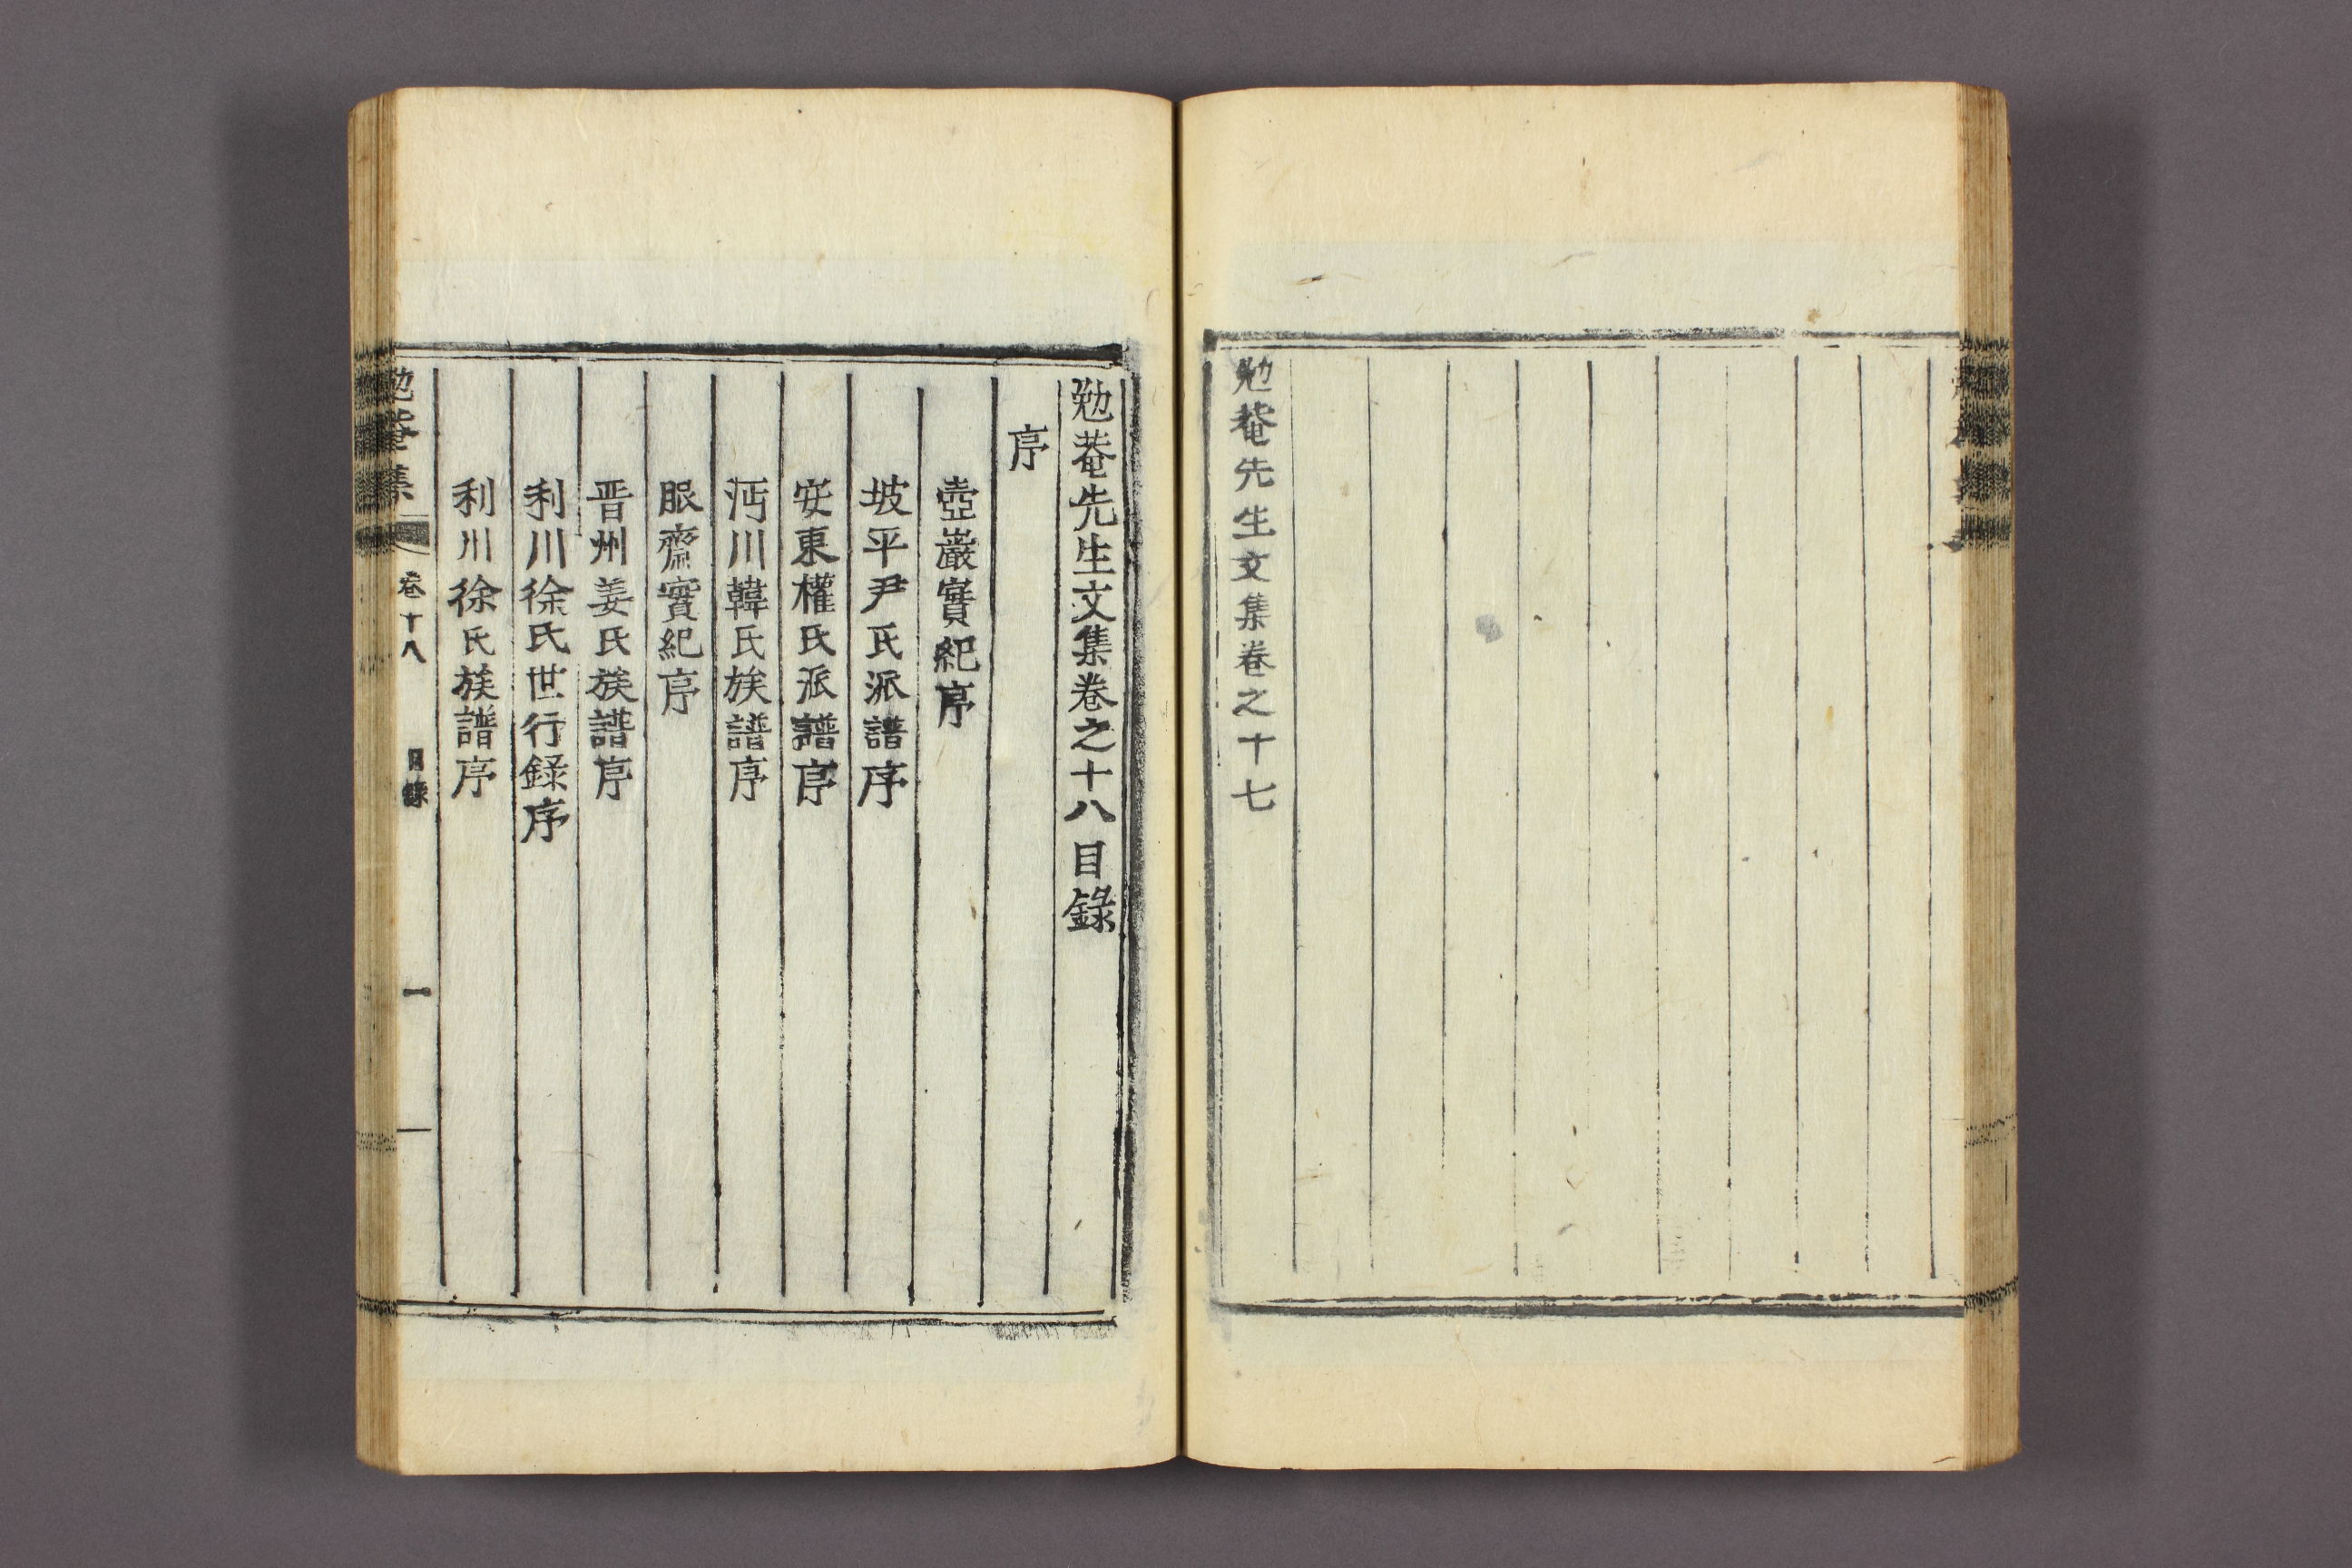 勉菴先生文集卷之十七
勉菴先生文集卷之十八目錄
序
壺巖實紀序
坡平尹氏派譜序
安東權氏派譜序
沔川韓氏族譜序
服齋實紀序
晋州姜氏族譜序
利川徐氏世行錄序
利川徐氏族譜序
勉菴集
卷十八
目錄
一